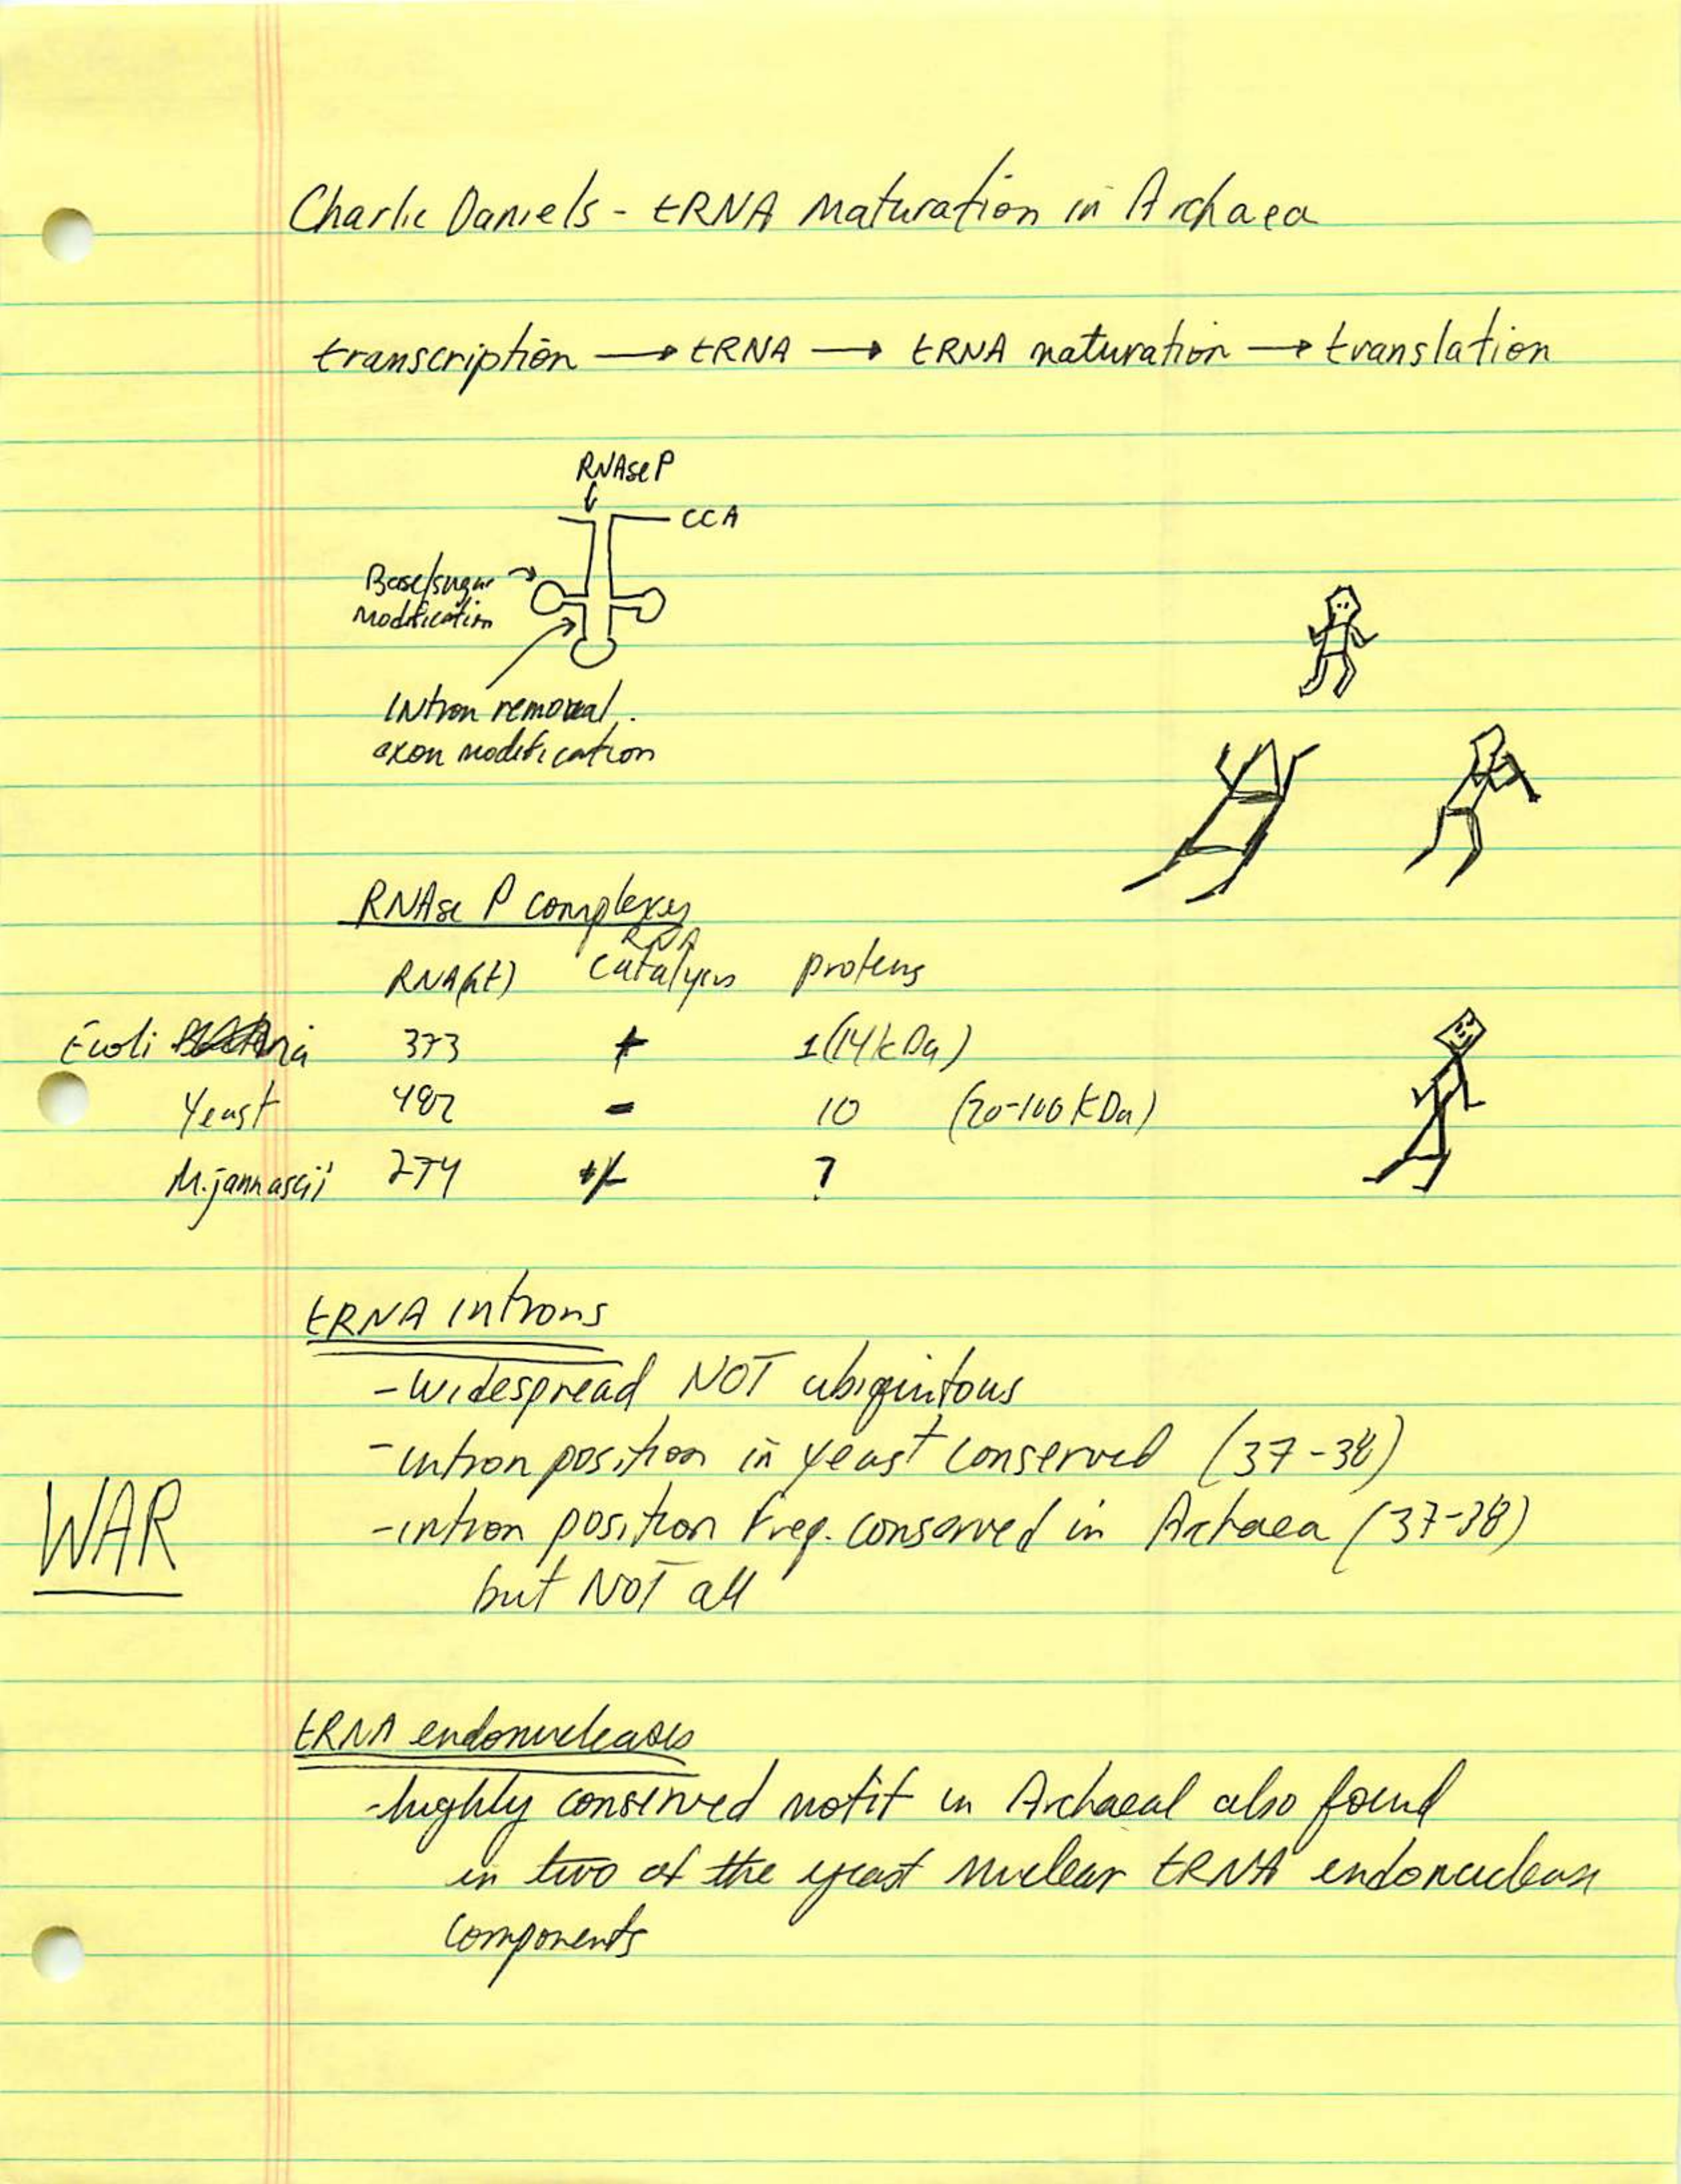 Charlie Daniels - tRNA Maturation in Archaea
transcription → tRNA → tRNA maturation → translation
RNAse P
CCA
Base/sugar
modification
Intron removal
exon modification
RNAse P complexes
RNA
RNA(nt) catalysis proteins
E coli 373 + 1 (14 kDa)
Yeast 482 - 10 (20-100 kDa)
M. jannascii 274 +/- ?
tRNA introns
- widespread NOT ubiquitous
- intron position in yeast conserved (37-38)
WAR
- intron position freq. conserved in Archaea (37-38)
but NOT all
tRNA endonucleases
- highly conserved motif in Archaeal also found
in two of the yeast nuclear tRNA endonuclease
components